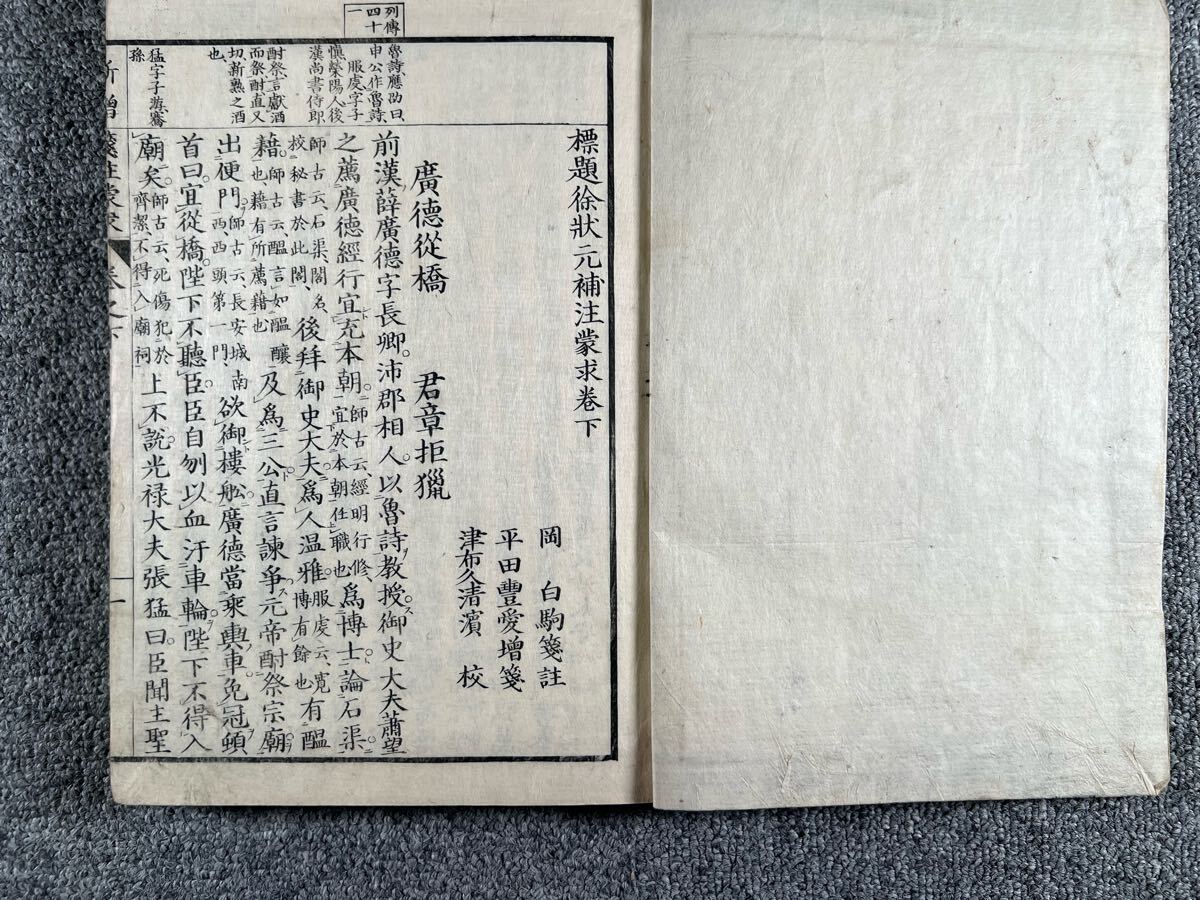 列傳
四十
一
魯詩應劭曰
申公作魯詩
服虔字子
慎滎陽人後
漢尚書侍郎
酎祭言獻酒
而祭酎直又
切新熟之酒
也
孫
標題徐狀元補注蒙求卷下
岡 白駒箋註
平田豐愛增箋
津布久清濱 校
廣德從橋 君章拒獵
前漢薛廣德字長卿。沛郡相人。以魯詩教授。御史大夫蕭望
之薦廣德經行宜充本朝。師古云、經明行修、宜於本朝任職也爲博士。論石渠
師古云、石渠、閣名、校秘書於此閣、後拜御史大夫。爲人温雅。服虔云、寬博有餘也有醞
藉。師古云、醞言如醞釀也、藉有所薦藉也及爲三公。直言諫爭。元帝酎祭宗廟。
出便門。師古云、長安城南西、西頭第一門、欲御樓舩。廣德當乘輿車。免冠頓
首曰。宜從橋。陛下不聽臣。臣自刎以血汙車輪。陛下不得入
廟矣。師古云、死傷犯於齊潔、不得入廟祠上不說。光祿大夫張猛曰。臣聞主聖
新增箋註蒙求 卷之下 一